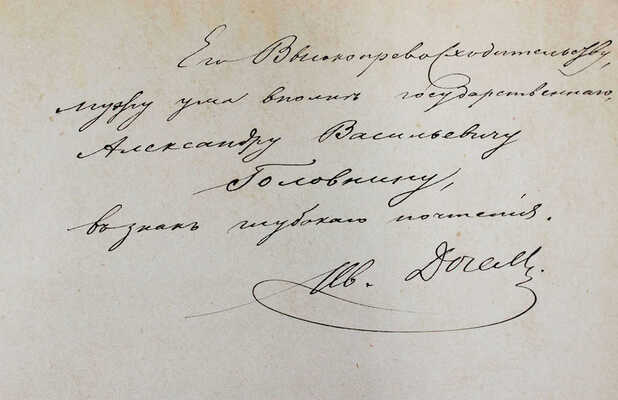 Его Высокопревосходительству,
мужу ума вполне государственнаго,
Александру Васильевичу
Головнину,
въ знакъ глубокаго почтенія.
Ив. Догель.